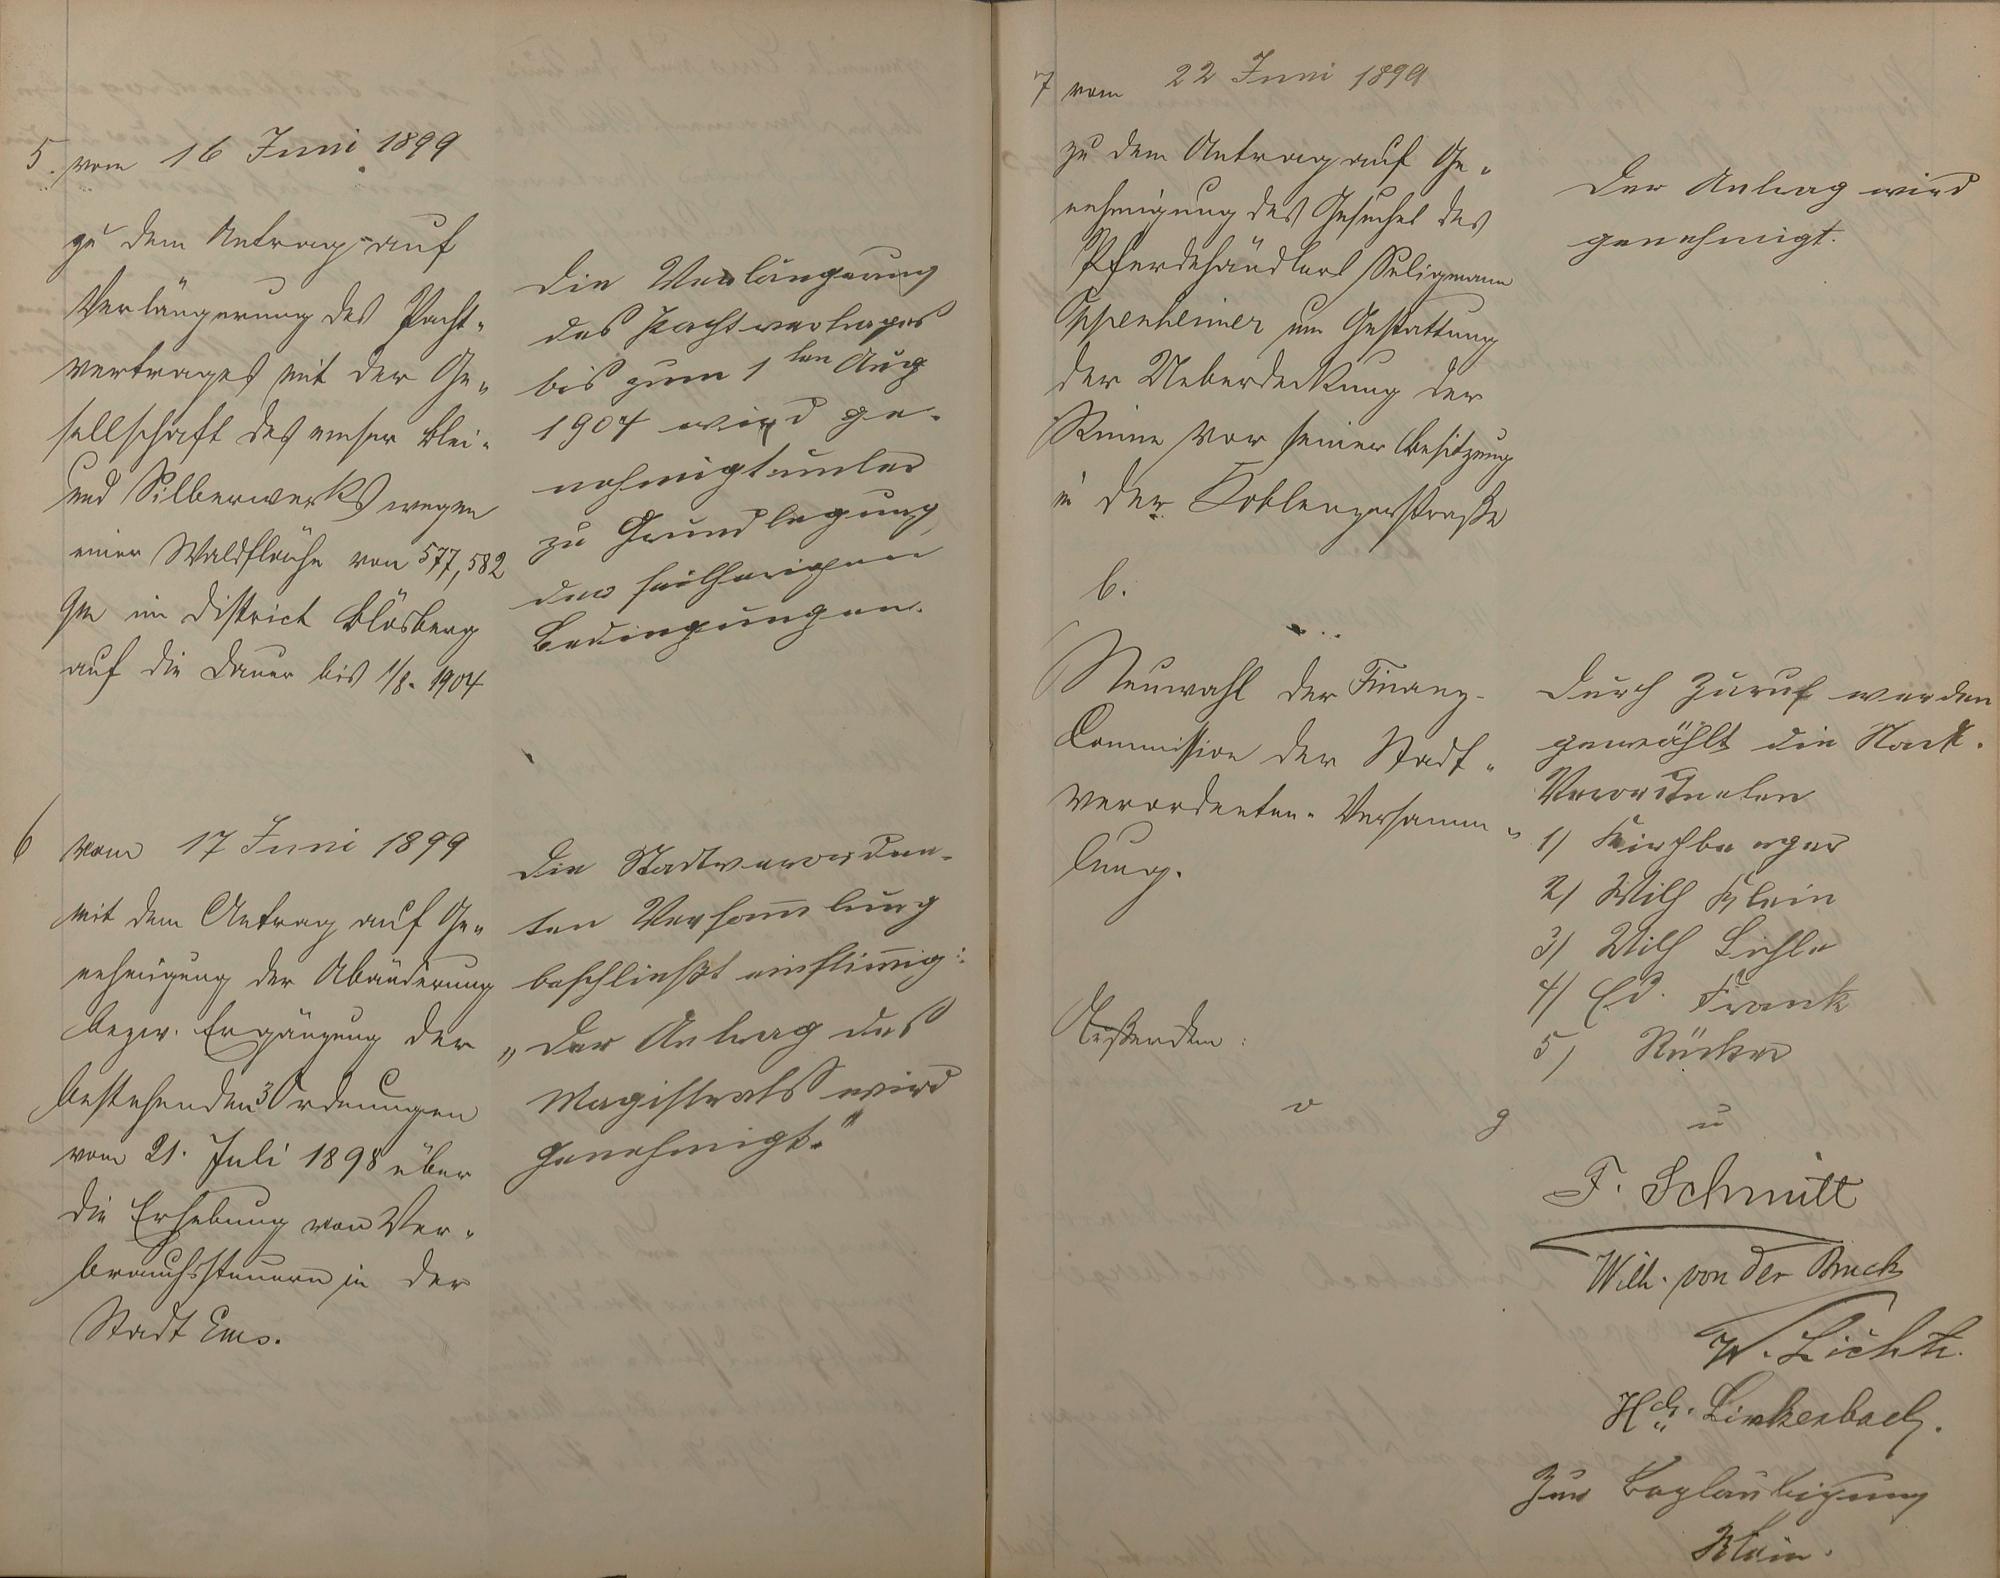 5. vom 16 Juni 1899
zu dem Antrag auf
Verlängerung des Pacht-
vertrages mit der Ge-
sellschaft des emser Blei-
und Silberwerks wegen
einer Waldfläche von 577,582
qm im District Blösberg
auf die Dauer bis 1/8. 1904
Die Verlängerung
des Pachtvertrages
bis zum 1ten Aug
1904 wird ge-
nehmigt unter
zu Grundlegung
der seitherigen
Bedingungen.
6 vom 17 Juni 1899
mit dem Antrag auf Ge-
nehmigung der Abänderung
bezw. Ergänzung der
bestehenden Ordnungen
vom 21. Juli 1898 über
die Erhebung von Ver-
brauchssteuern in der
Stadt Ems.
Die Stadtverordne-
ten Versammlung
beschließt einstimmig:
"Der Antrag des
Magistrats wird
genehmigt."
7 vom 22 Juni 1899
zu dem Antrag auf Ge-
nehmigung des Gesuches des
Pferdehändlers Seligmann
Oppenheimer um Gestattung
der Ueberdeckung der
Rinne vor seiner Besitzung
in der Koblenzerstraße
Der Antrag wird
genehmigt.
b.
Neuwahl der Finanz-
Commission der Stadt-
verordneten-Versamm-
lung.
Durch Zuruf werden
gewählt die Stadt-
Verordneten
1) Kirchberger
2) Wilh Klein
3) Wilh
4) Ed. Frank
5) Rücker
Außerdem:
v g u
F. Schmitt
Wilh. von der Bruck
W. Licht.
Hch. Linkenbach.
Zur Beglaubigung
Klein.